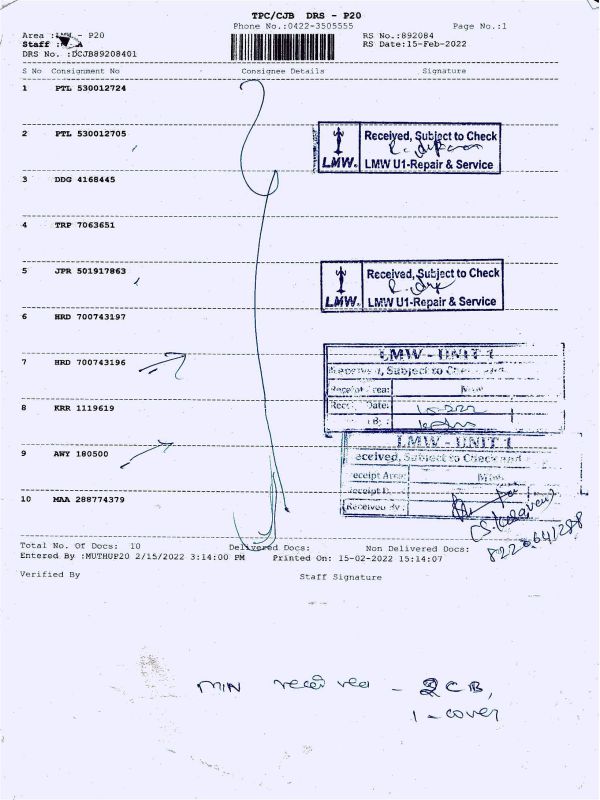 TPC/CJB DRS - P20
Phone No.:0422-3505555 Page No.:1
Area : - P20 RS No.:892084
Staff : RS Date:15-Feb-2022
DRS No. :DCJB89208401
S No Consignment No Consignee Details Signature
1 PTL 530012724
2 PTL 530012705
Received, Subject to Check
LMW. LMW U1-Repair & Service
3 DDG 4168445
4 TRP 7063651
5 JPR 501917863
Received, Subject to Check
LMW. LMW U1-Repair & Service
6 HRD 700743197
7 HRD 700743196
LMW - UNIT 1
8 KRR 1119619
Date:
LMW - UNIT 1
9 AWY 180500
eceived, Subject to Check and
eceipt Area:
10 MAA 288774379
Received By :
8220641288
Total No. Of Docs: 10 Delivered Docs: Non Delivered Docs:
Entered By :MUTHUP20 2/15/2022 3:14:00 PM Printed On: 15-02-2022 15:14:07
Verified By Staff Signature
MIN received - 2 CB,
1 - cover